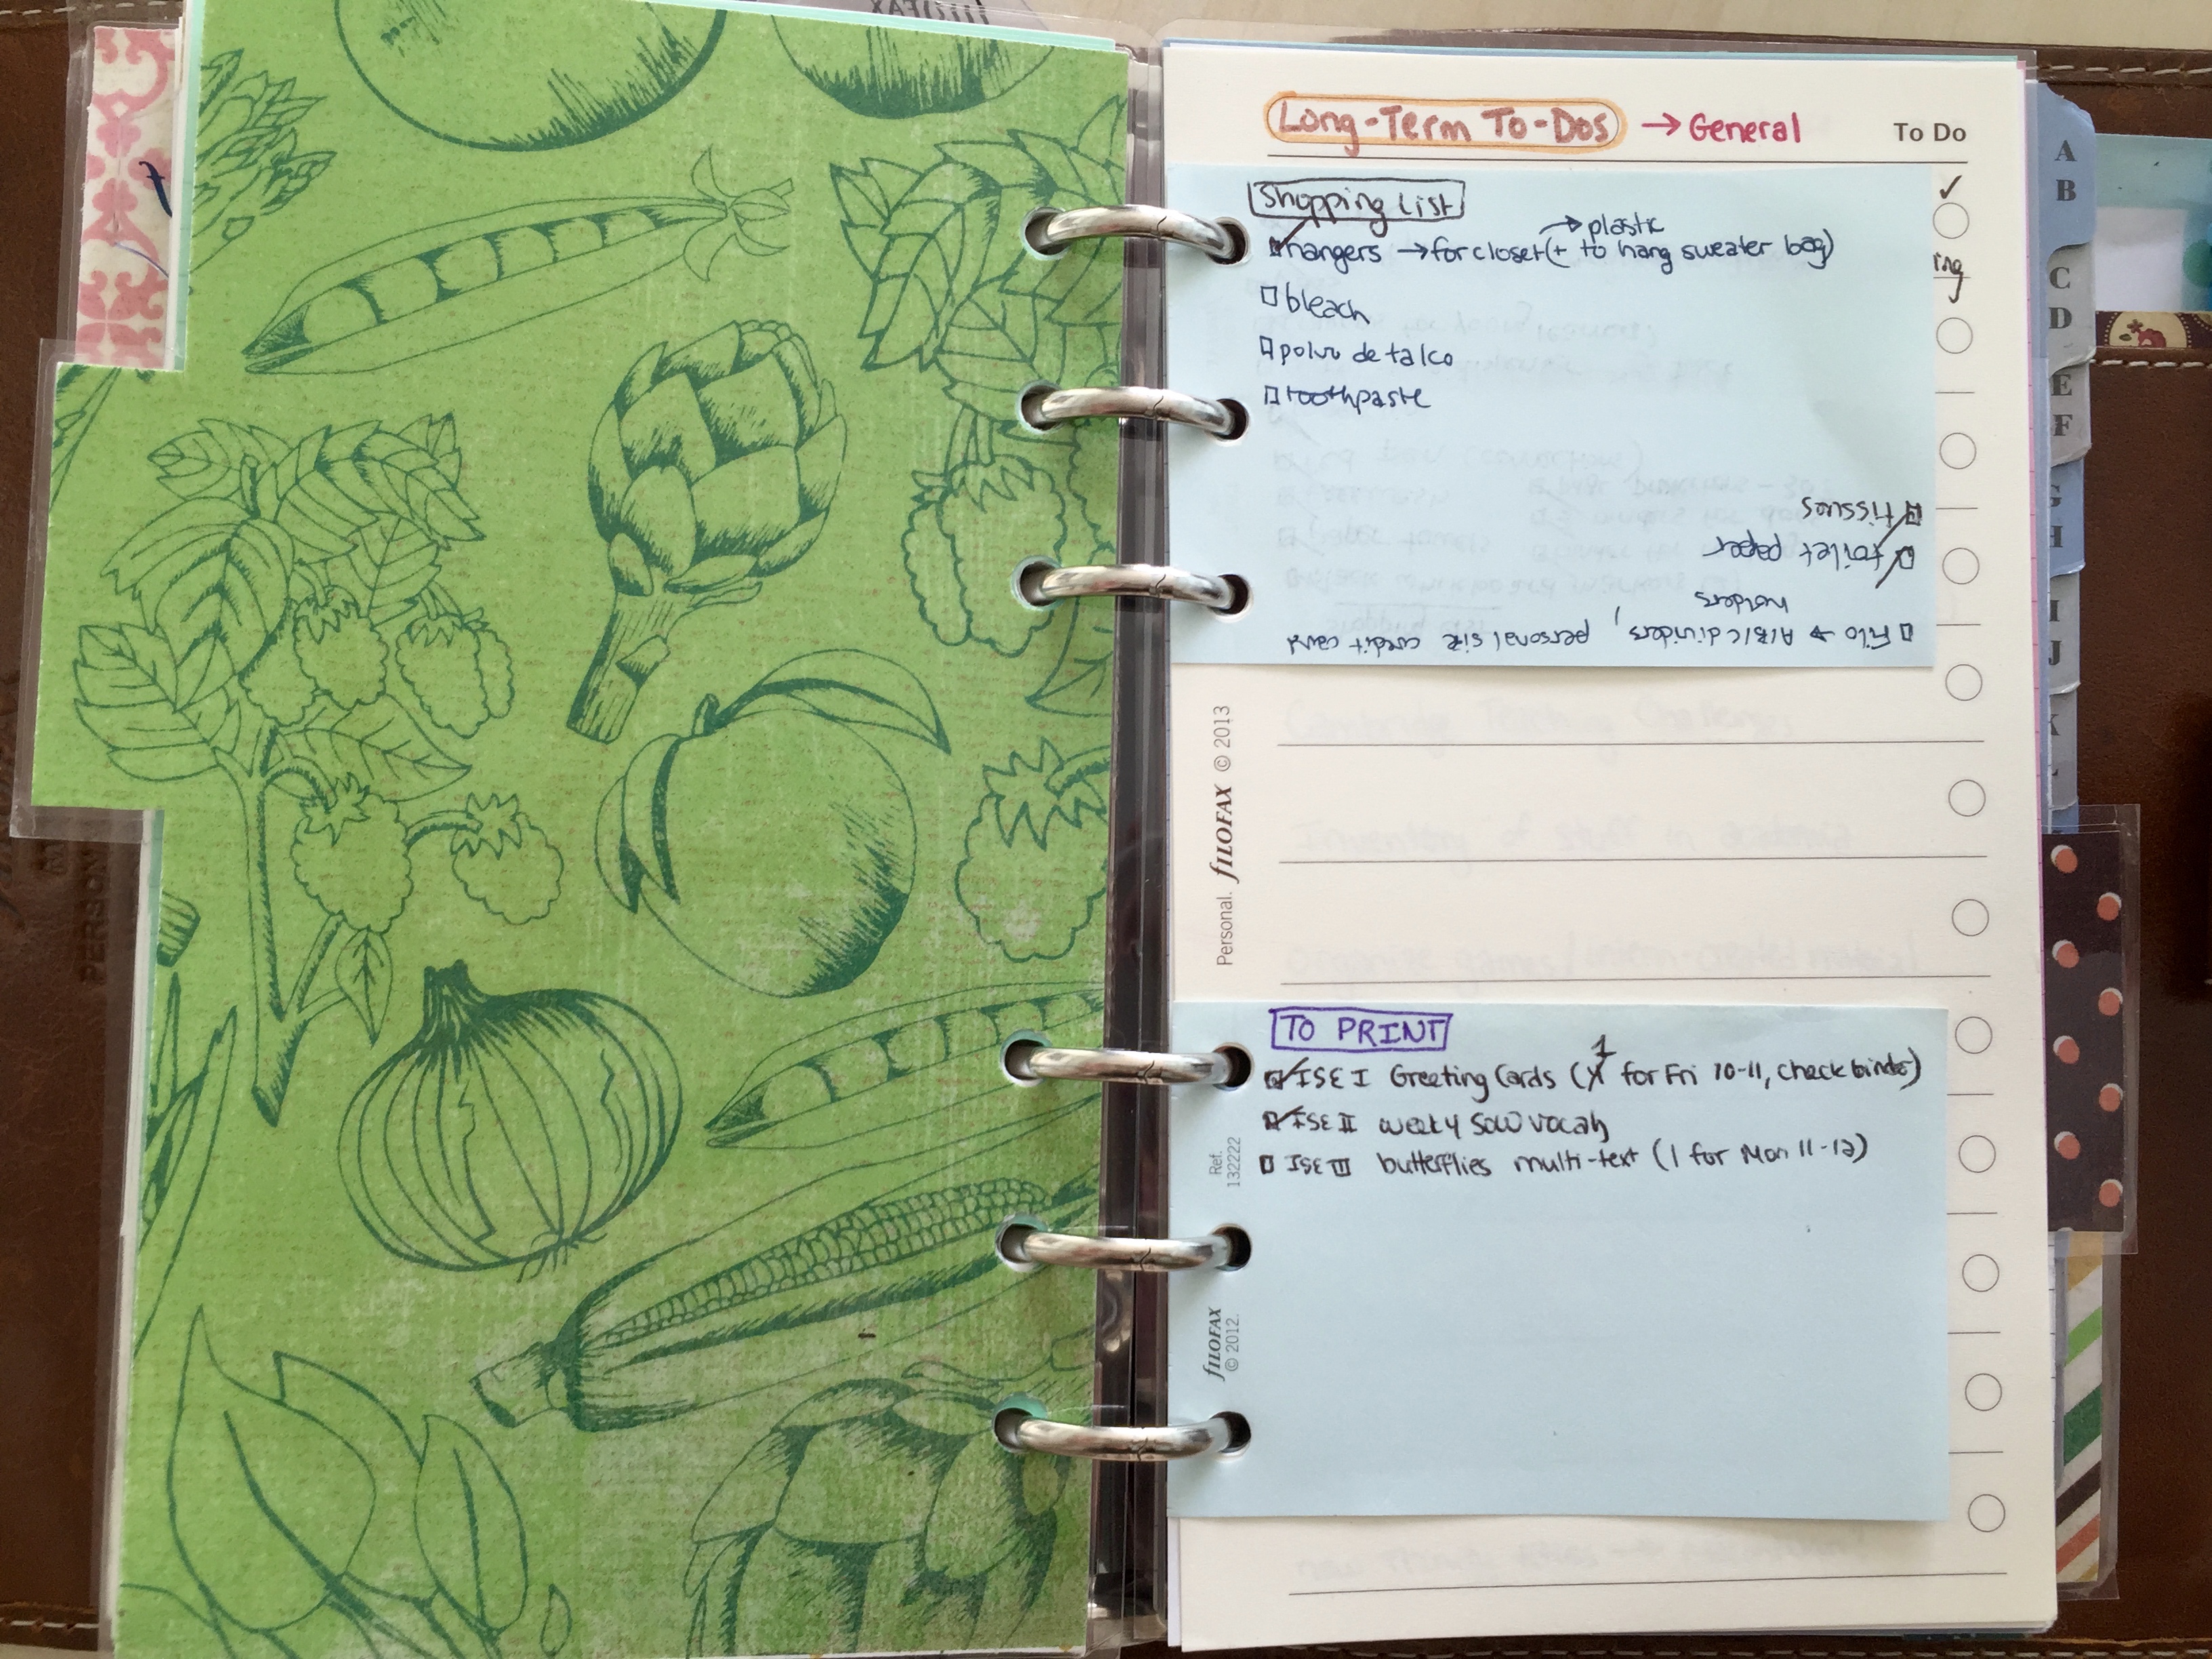 Long-Term To-Dos → General
To Do
✓
Shopping List
→ plastic
hangers → for closet (+ to hang sweater bag)
ing
bleach
polvo de talco
toothpaste
tissues
toilet paper
Filo → A/B/C dividers, personal size credit card
holders
Personal. fILOFAX © 2013
TO PRINT
1
ISE I Greeting Cards ( for Fri 10-11, check binder)
ISE II weekly SOW vocab
ISE III butterflies multi-text (1 for Mon 11-12)
Ref.
132222
fILOFAX
© 2012.
A
B
C
D
E
F
G
H
I
J
K
L
PERSON